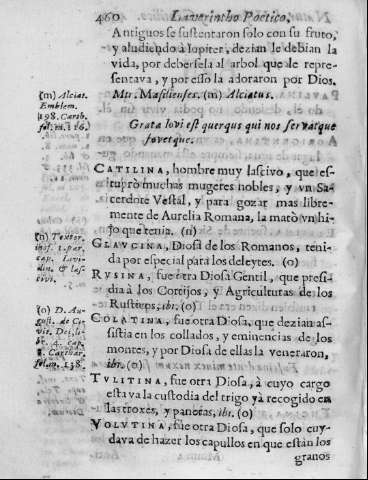 460 Laverintho Poetico.
Antiguos se sustentaron solo con su fruto,
y aludiendo à Iupiter, dezian le debian la
vida, por debersela al arbol que le repre-
sentava, y por esso la adoraron por Dios.
Mtr. Masilienses. (m) Alciatus.
(m) Alciat.
Emblem.
198. Carth.
fol. m. 116.
Grata Iovi est quercus qui nos servatque
fovetque.
CATILINA, hombre muy lascivo, que es-
tuprò muchas mugeres nobles, y un Sa-
cerdote Vestal, y para gozar mas libre-
mente de Aurelia Romana, la matò vn hi-
jo que tenia. (n)
(n) Textor,
inof. 1. par.
cap. Livi-
din. & las-
civi.
GLAVCINA, Diosa de los Romanos, teni-
da por especial para los deleytes. (o)
RVSINA, fue otra Diosa Gentil, que presi-
dia à los Cortijos, y Agriculturas de los
Rusticos, ibi. (o)
(o) D. Au-
gust. de Ci-
vit. Dei, li-
br. 4. cap.
8. Carthar.
fol. m. 138.
COLATINA, fue otra Diosa, que dezian as-
sistia en los collados, y eminencias de los
montes, y por Diosa de ellas la veneraron,
ibi. (o)
TVLITINA, fue otra Diosa, à cuyo cargo
estava la custodia del trigo yà recogido en
las troxes, y paneras, ibi. (o)
VOLVTINA, fue otra Diosa, que solo cuy-
dava de hazer los capullos en que están los
granos